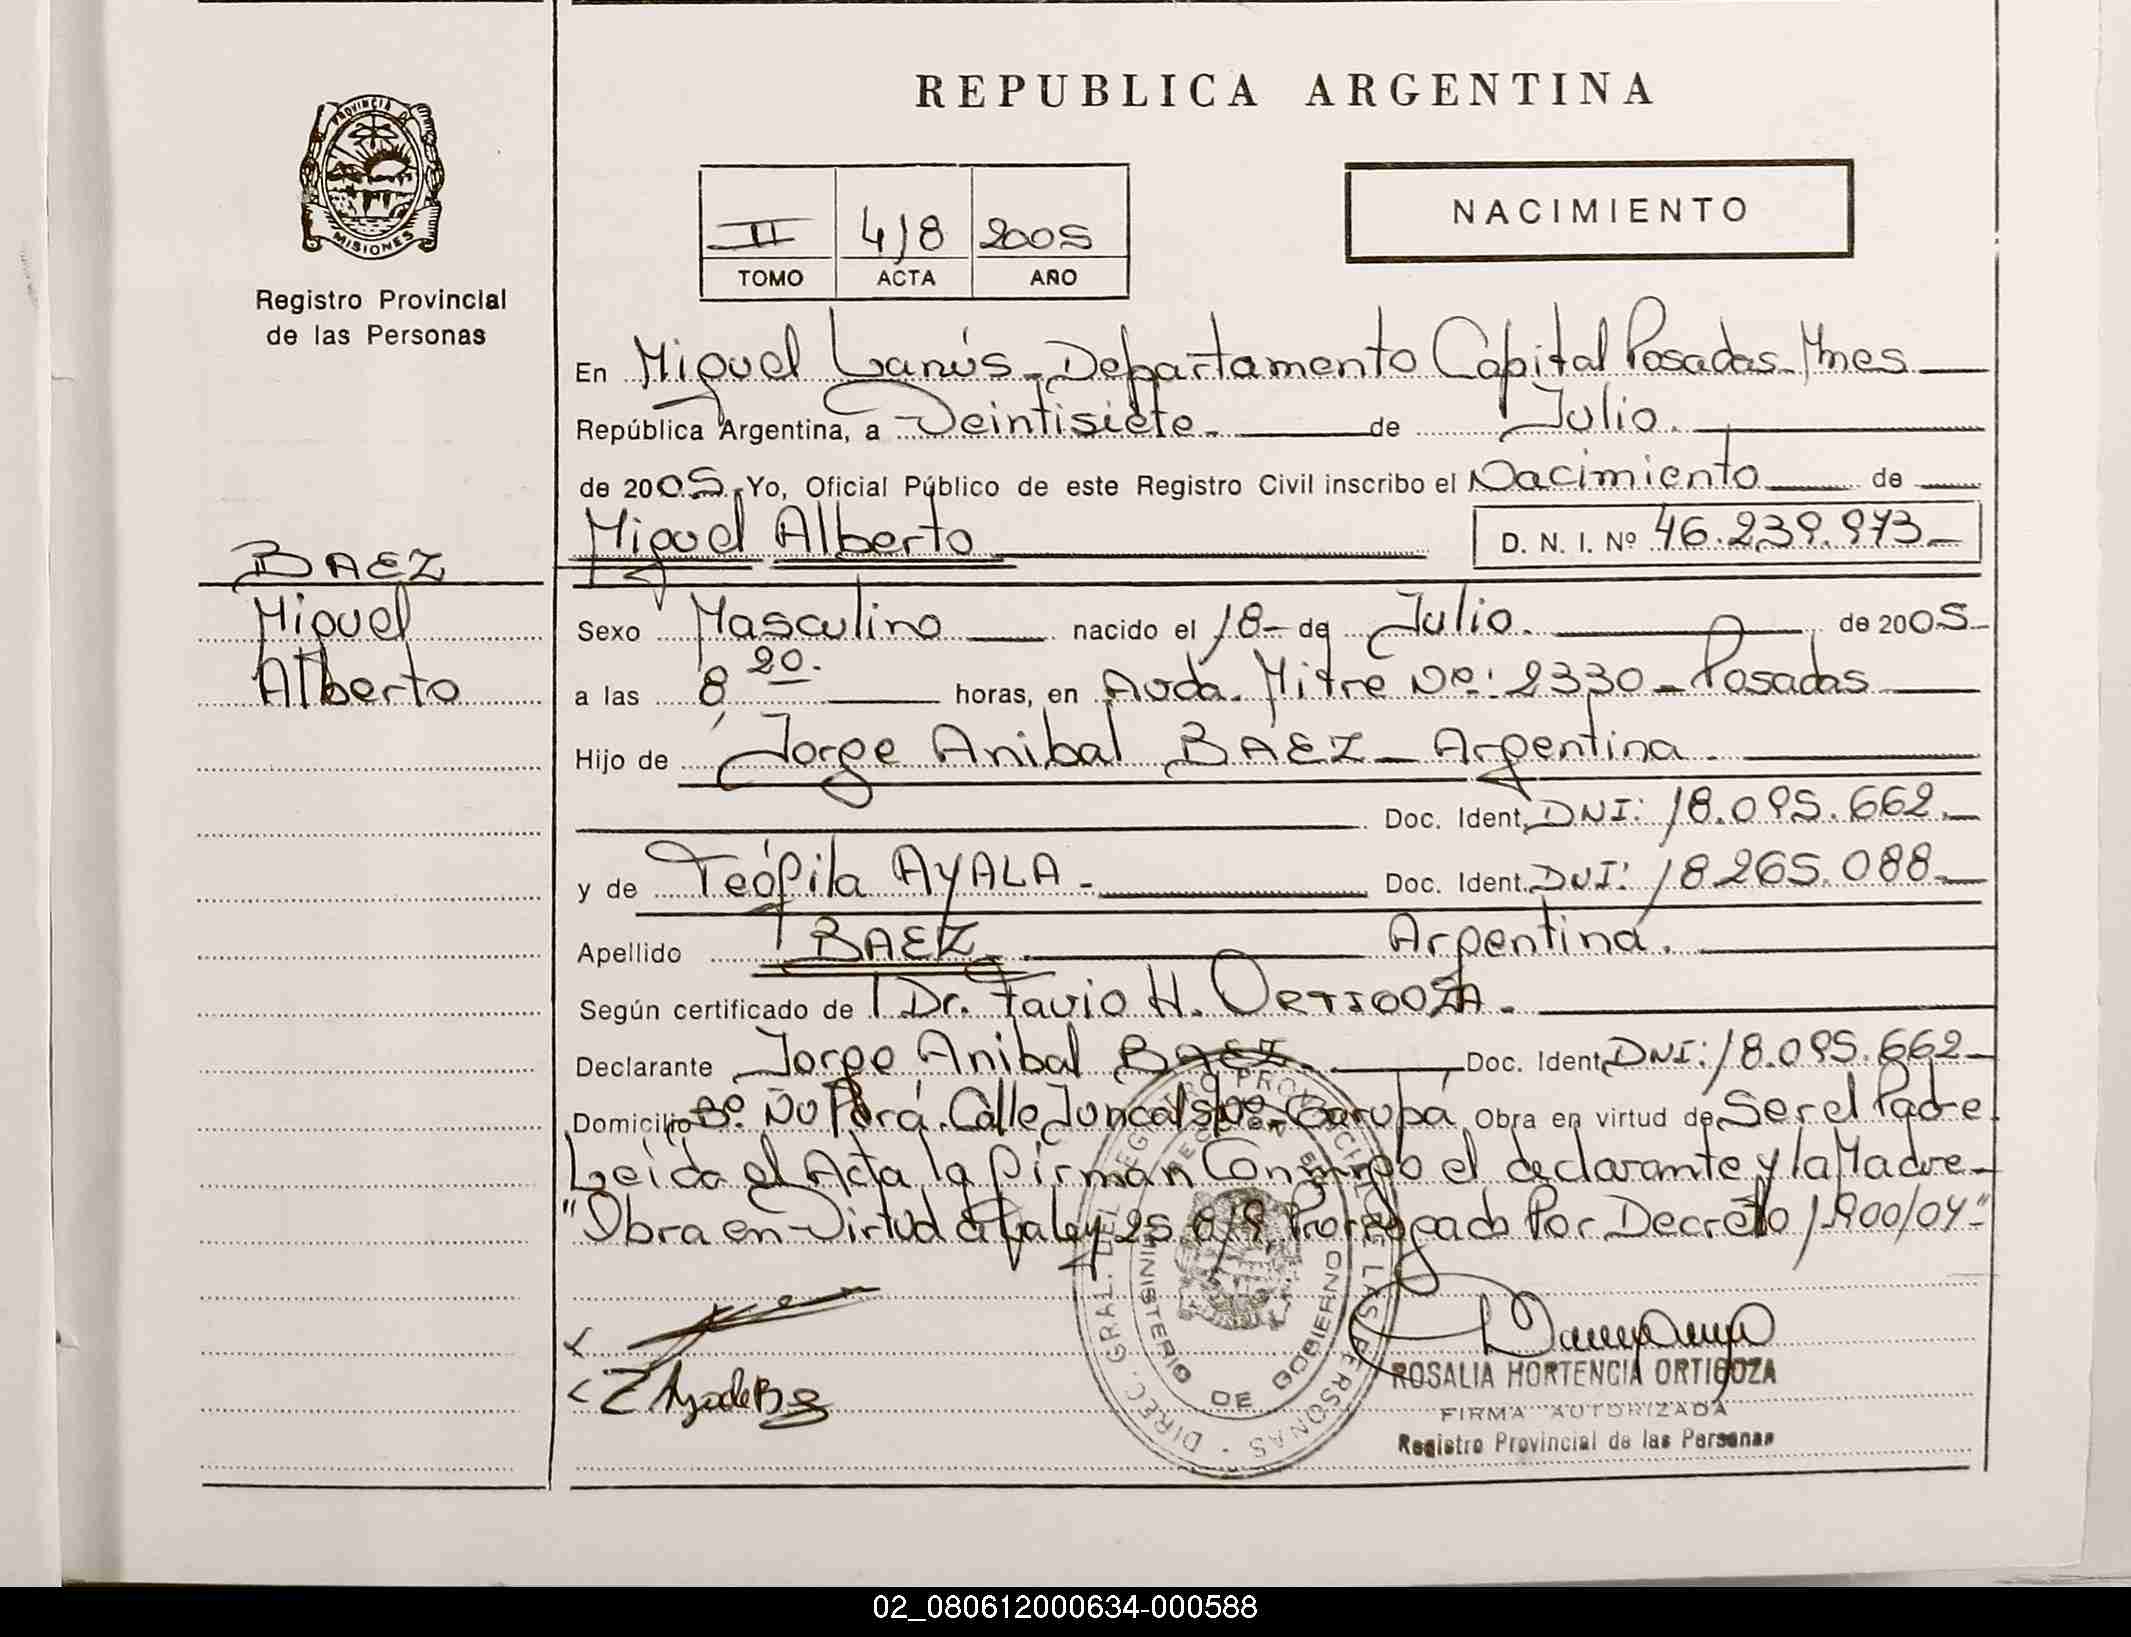 REPUBLICA ARGENTINA
PROVINCIA DE
MISIONES
Registro Provincial
de las Personas
II 418 2005
TOMO ACTA AÑO
NACIMIENTO
En Miguel Lanús - Departamento Capital Posadas - Mnes
República Argentina, a Veintisiete - de Julio.
de 2005. Yo, Oficial Público de este Registro Civil inscribo el Nacimiento de
Miguel Alberto D. N. I. Nº 46.239.973 -
BAEZ
Miguel
Alberto
Sexo Masculino nacido el 18 - de Julio. de 2005 -
a las 8 20. horas, en Avda. Mitre Nº: 2330 - Posadas
Hijo de Jorge Anibal BAEZ - Argentina
Doc. Ident. DNI: 18.095.662. -
y de Teófila AYALA - Doc. Ident. DNI: 18265.088 -
Apellido BAEZ. Argentina.
Según certificado de Dr. Favio H. ORTIGOZA -
Declarante Jorge Anibal BAEZ. Doc. Ident. DNI: 18.095.662 -
Domicilio Bº. Ñu Porá. Calle Juncal Garupá Obra en virtud de Ser el Padre.
Leida el Acta la firman Conmigo el declarante y la Madre -
"Obra en Virtud a la ley Prorrogado Por Decreto 1.900/04"
DIREC. GRAL. DEL REGISTRO PROVINCIAL DE LAS PERSONAS
MINISTERIO DE GOBIERNO
ROSALIA HORTENCIA ORTIGOZA
FIRMA AUTORIZADA
Registro Provincial de las Personas
02_080612000634-000588